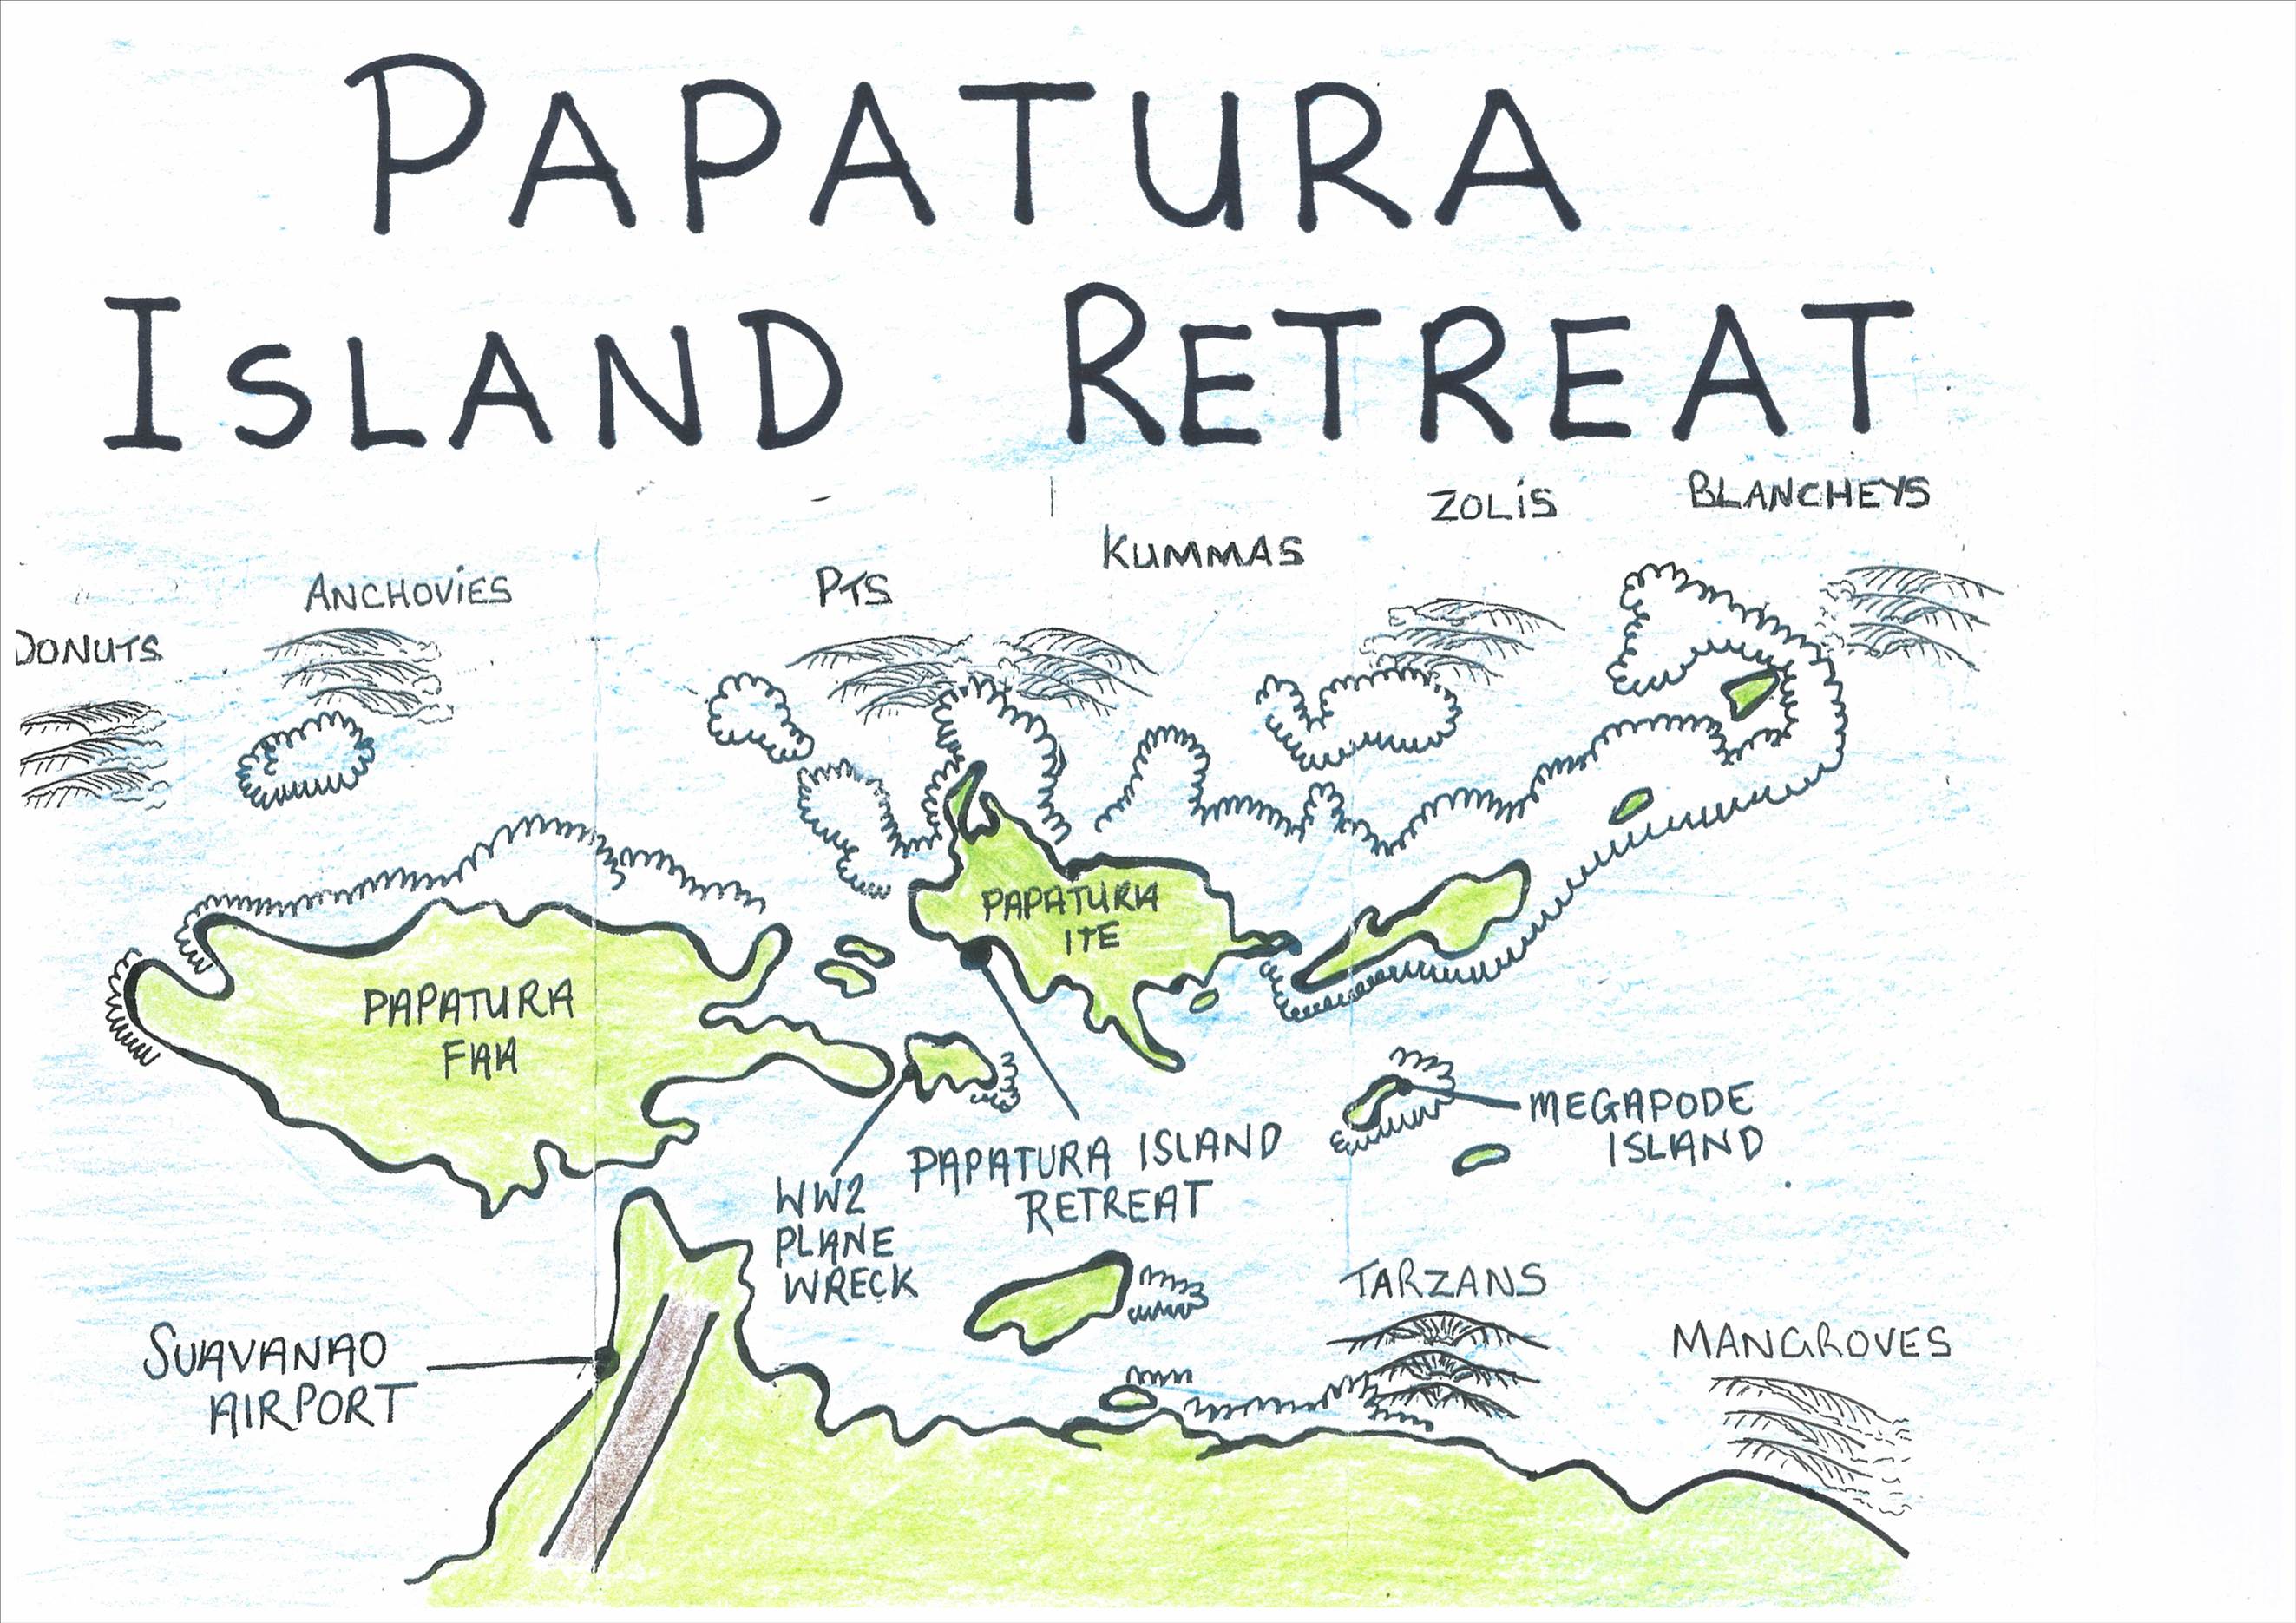 PAPATURA
ISLAND RETREAT
ZOLIS
BLANCHEYS
KUMMAS
ANCHOVIES
PTS
DONUTS
PAPATURA
ITE
PAPATURA
FAA
MEGAPODE
ISLAND
PAPATURA ISLAND
RETREAT
WW2
PLANE
WRECK
TARZANS
MANGROVES
SUAVANAO
AIRPORT